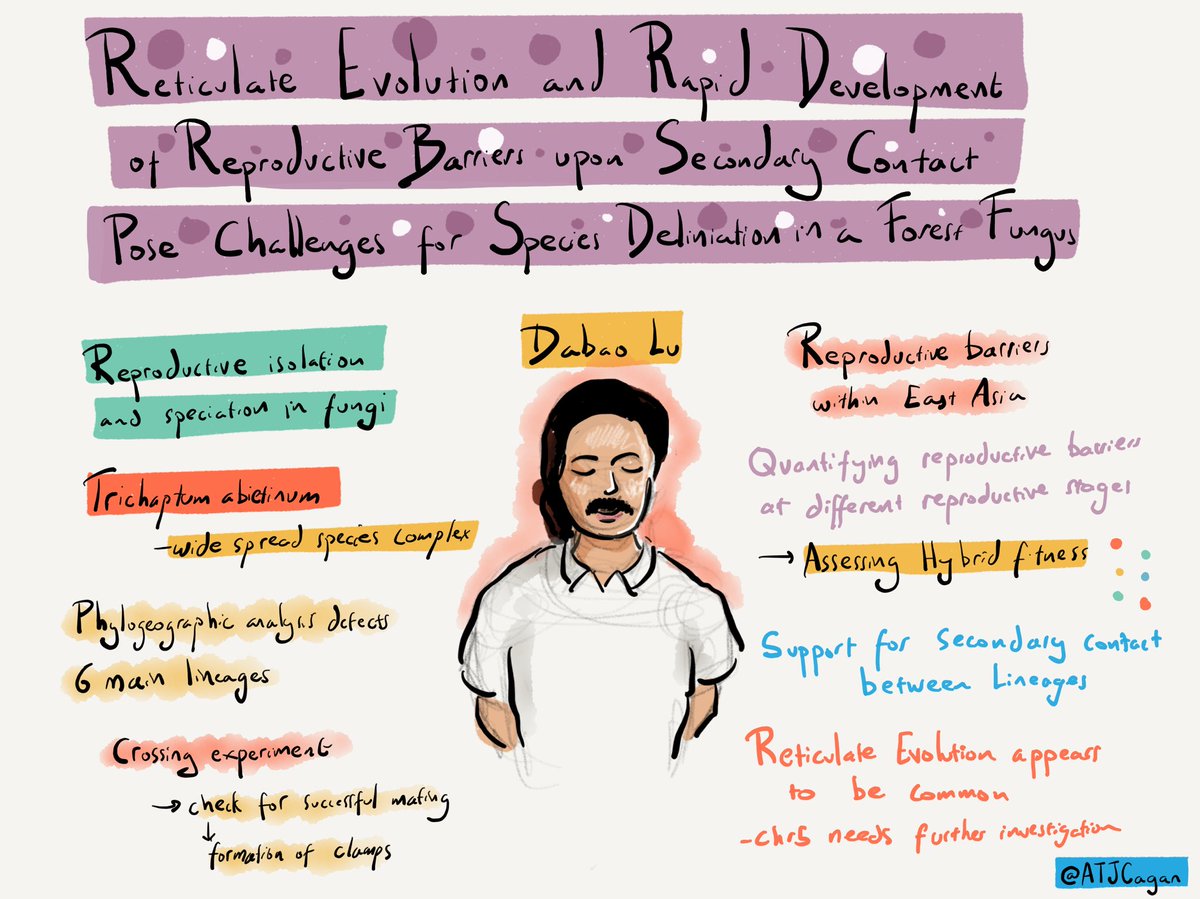 Reticulate Evolution and Rapid Development
of Reproductive Barriers upon Secondary Contact
Pose Challenges for Species Deliniation in a Forest Fungus
Reproductive isolation
and speciation in fungi
Trichaptum abietinum
- wide spread species complex
Phylogeographic analysis detects
6 main lineages
Crossing experiment
→ check for successful mating
↓
formation of clamps
Dabao Lu
Reproductive barriers
within East Asia
Quantifying reproductive barriers
at different reproductive stages
→ Assessing Hybrid fitness
Support for Secondary contact
between Lineages
Reticulate Evolution appears
to be common
- chr5 needs further investigation
@ATJCagan